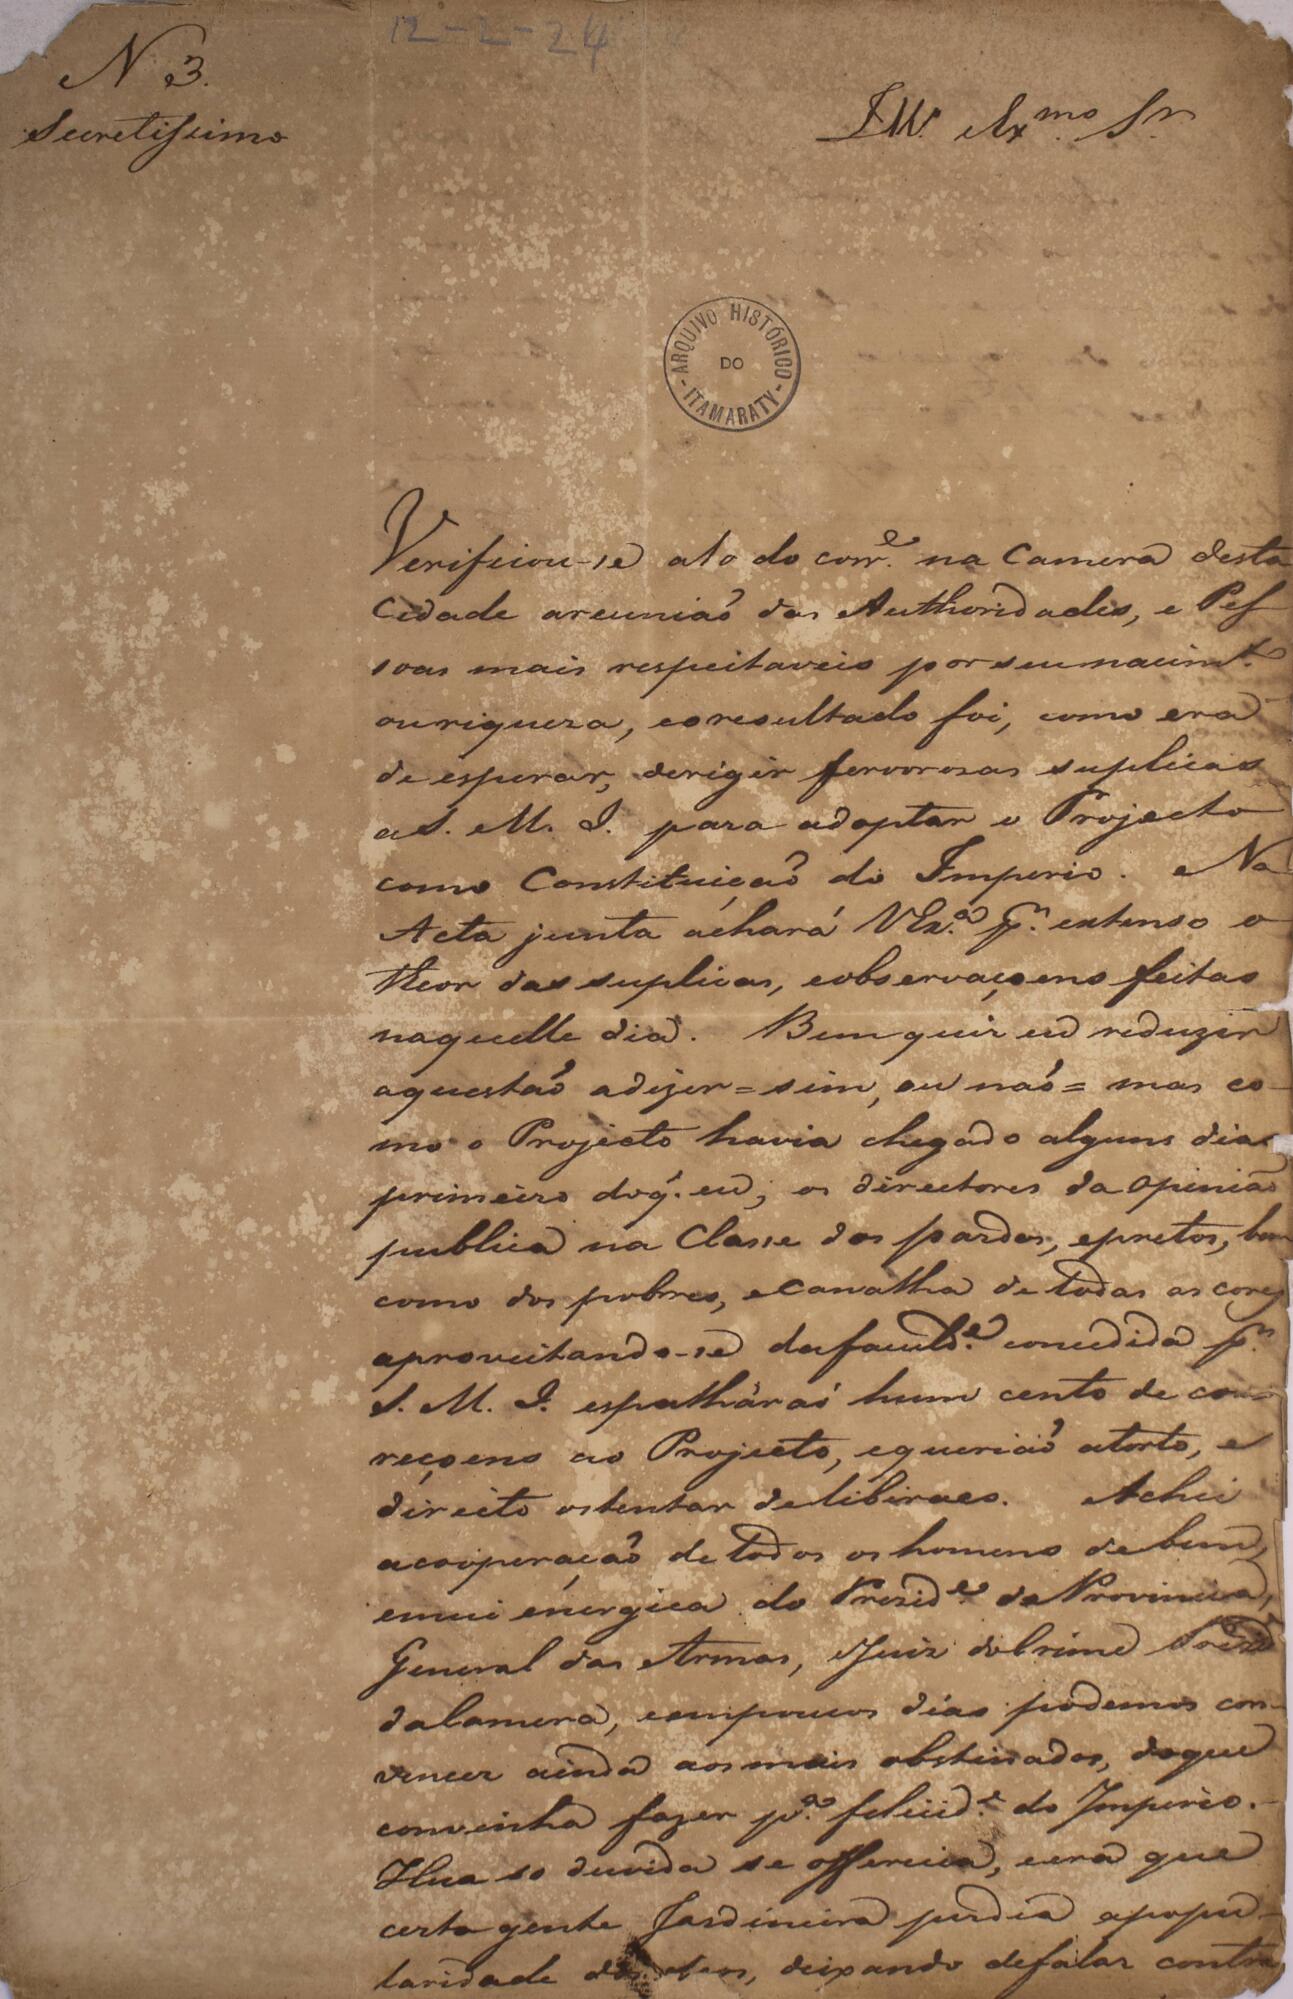 12-2-24
N 3.
Secretissimo
Ill.mo Exmo. Sr.
ARQUIVO HISTÓRICO
DO
ITAMARATY
Verificou-se a 10 do corre. na Camera desta
Cidade areuniaõ das Authoridades, e Pes
soas mais respeitaveis por seu nacimto.
ou riqueza, eoresultado foi, como era
de esperar, derigir fervorosas suplicas
a S. M. I. para adoptar o Projecto
como Constituiçaõ do Imperio. Na
Acta junta achará VExa. pr. extenso o
theor das suplicas, eobservaçoens feitas
naquelle dia. Bem quiz eu reduzir
aquestaõ adizer = sim, ou naõ = mas co-
mo o Projecto havia chegado alguns dias
primeiro doq. eu, os directores da Opiniaõ
publica na Classe dos pardos, epretos, bem
como dos pobres, ecanalha de todas as cores
aproveitando-se dafaculde. concedida pr.
S. M. I. espalháraõ hum cento de cor-
reçoens ao Projecto, equeriaõ atorto, e
direito ostentar deliberaes. Achei
acooperaçaõ de todos os homens debem,
emui énergica do Prezide. da Provincia,
General das Armas, eJuiz doCrime
daCamera, eempoucos dias podemos con-
vencer ainda aos mais obstinados, doque
convinha fazer pa. felicide. do Imperio.
Hua so duvida se offerecia, eera que
certa gente Jardineira perdia apopu-
laridade dos seos, deixando defalar contra